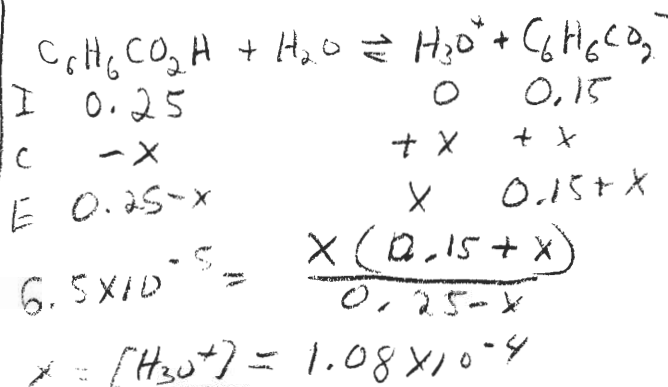 C₆H₆CO₂H + H₂O ⇌ H₃O⁺ + C₆H₆CO₂⁻
I 0.25 0 0.15
C -x +x +x
E 0.25-x x 0.15+x
6.5x10⁻⁵ = x(0.15+x) / 0.25-x
x = [H₃O⁺] = 1.08x10⁻⁴